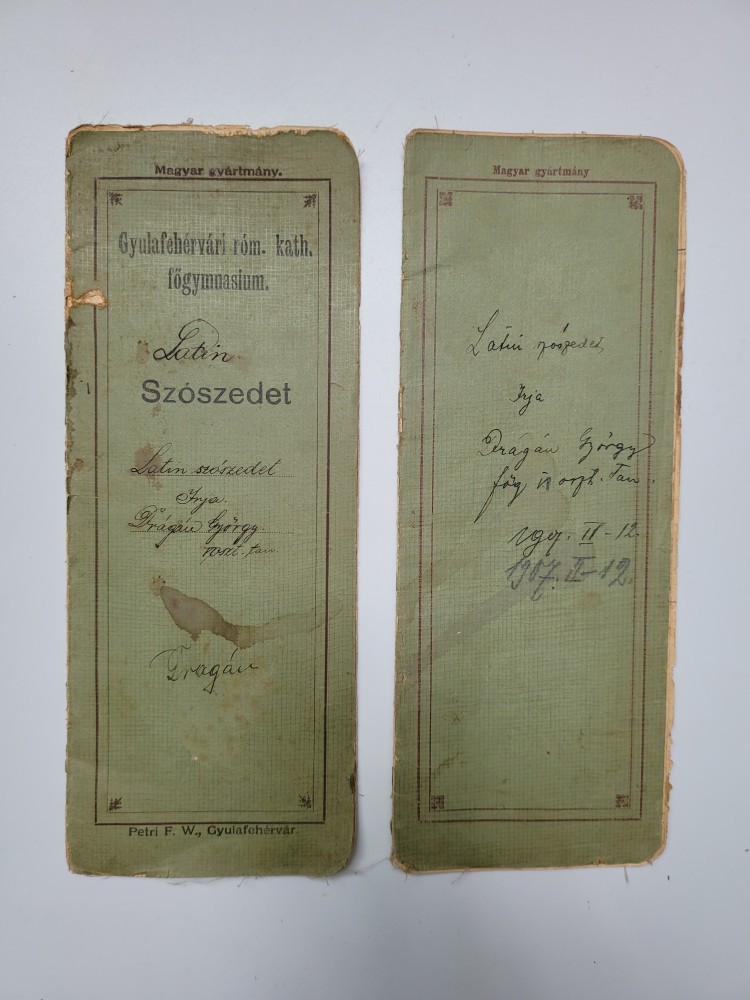 Magyar gyártmány.
Gyulafehérvári róm. kath.
főgymnasium.
Latin
Szószedet
Latin szószedet
Irja.
Drágán György.
oszt. tan.
Dragán
Petri F. W., Gyulafehérvár.
Magyar gyártmány
Latin szószedet
Irja
Drágán György
főg oszt. Tan.
1907. II-12.
1907. II-12.